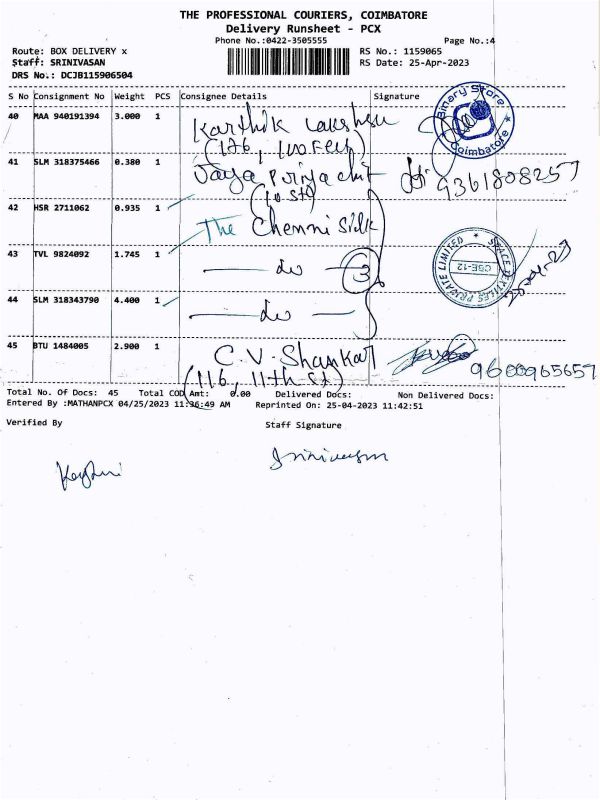 THE PROFESSIONAL COURIERS, COIMBATORE
Delivery Runsheet - PCX
Phone No.:0422-3505555 Page No.:4
Route: BOX DELIVERY x RS No.: 1159065
Staff: SRINIVASAN RS Date: 25-Apr-2023
DRS No.: DCJB115906504
S No Consignment No Weight PCS Consignee Details Signature
40 MAA 940191394 3.000 1 Karthik Lakshm
(176, 100 Feet)
Binary Store
Coimbatore
41 SLM 318375466 0.380 1 Jaya Priya chit 9361808257
(10 st)
42 HSR 2711062 0.935 1 The Chenni Silk
43 TVL 9824092 1.745 1 — do — 3
SPACE TEXTILES PRIVATE LIMITED
CBE-12
44 SLM 318343790 4.400 1 — do —
45 BTU 1484005 2.900 1 C.V. Shankar
(116, 11th st) 9600965657
Total No. Of Docs: 45 Total COD Amt: 0.00 Delivered Docs: Non Delivered Docs:
Entered By :MATHANPCX 04/25/2023 11:36:49 AM Reprinted On: 25-04-2023 11:42:51
Verified By Staff Signature
Srinivasan